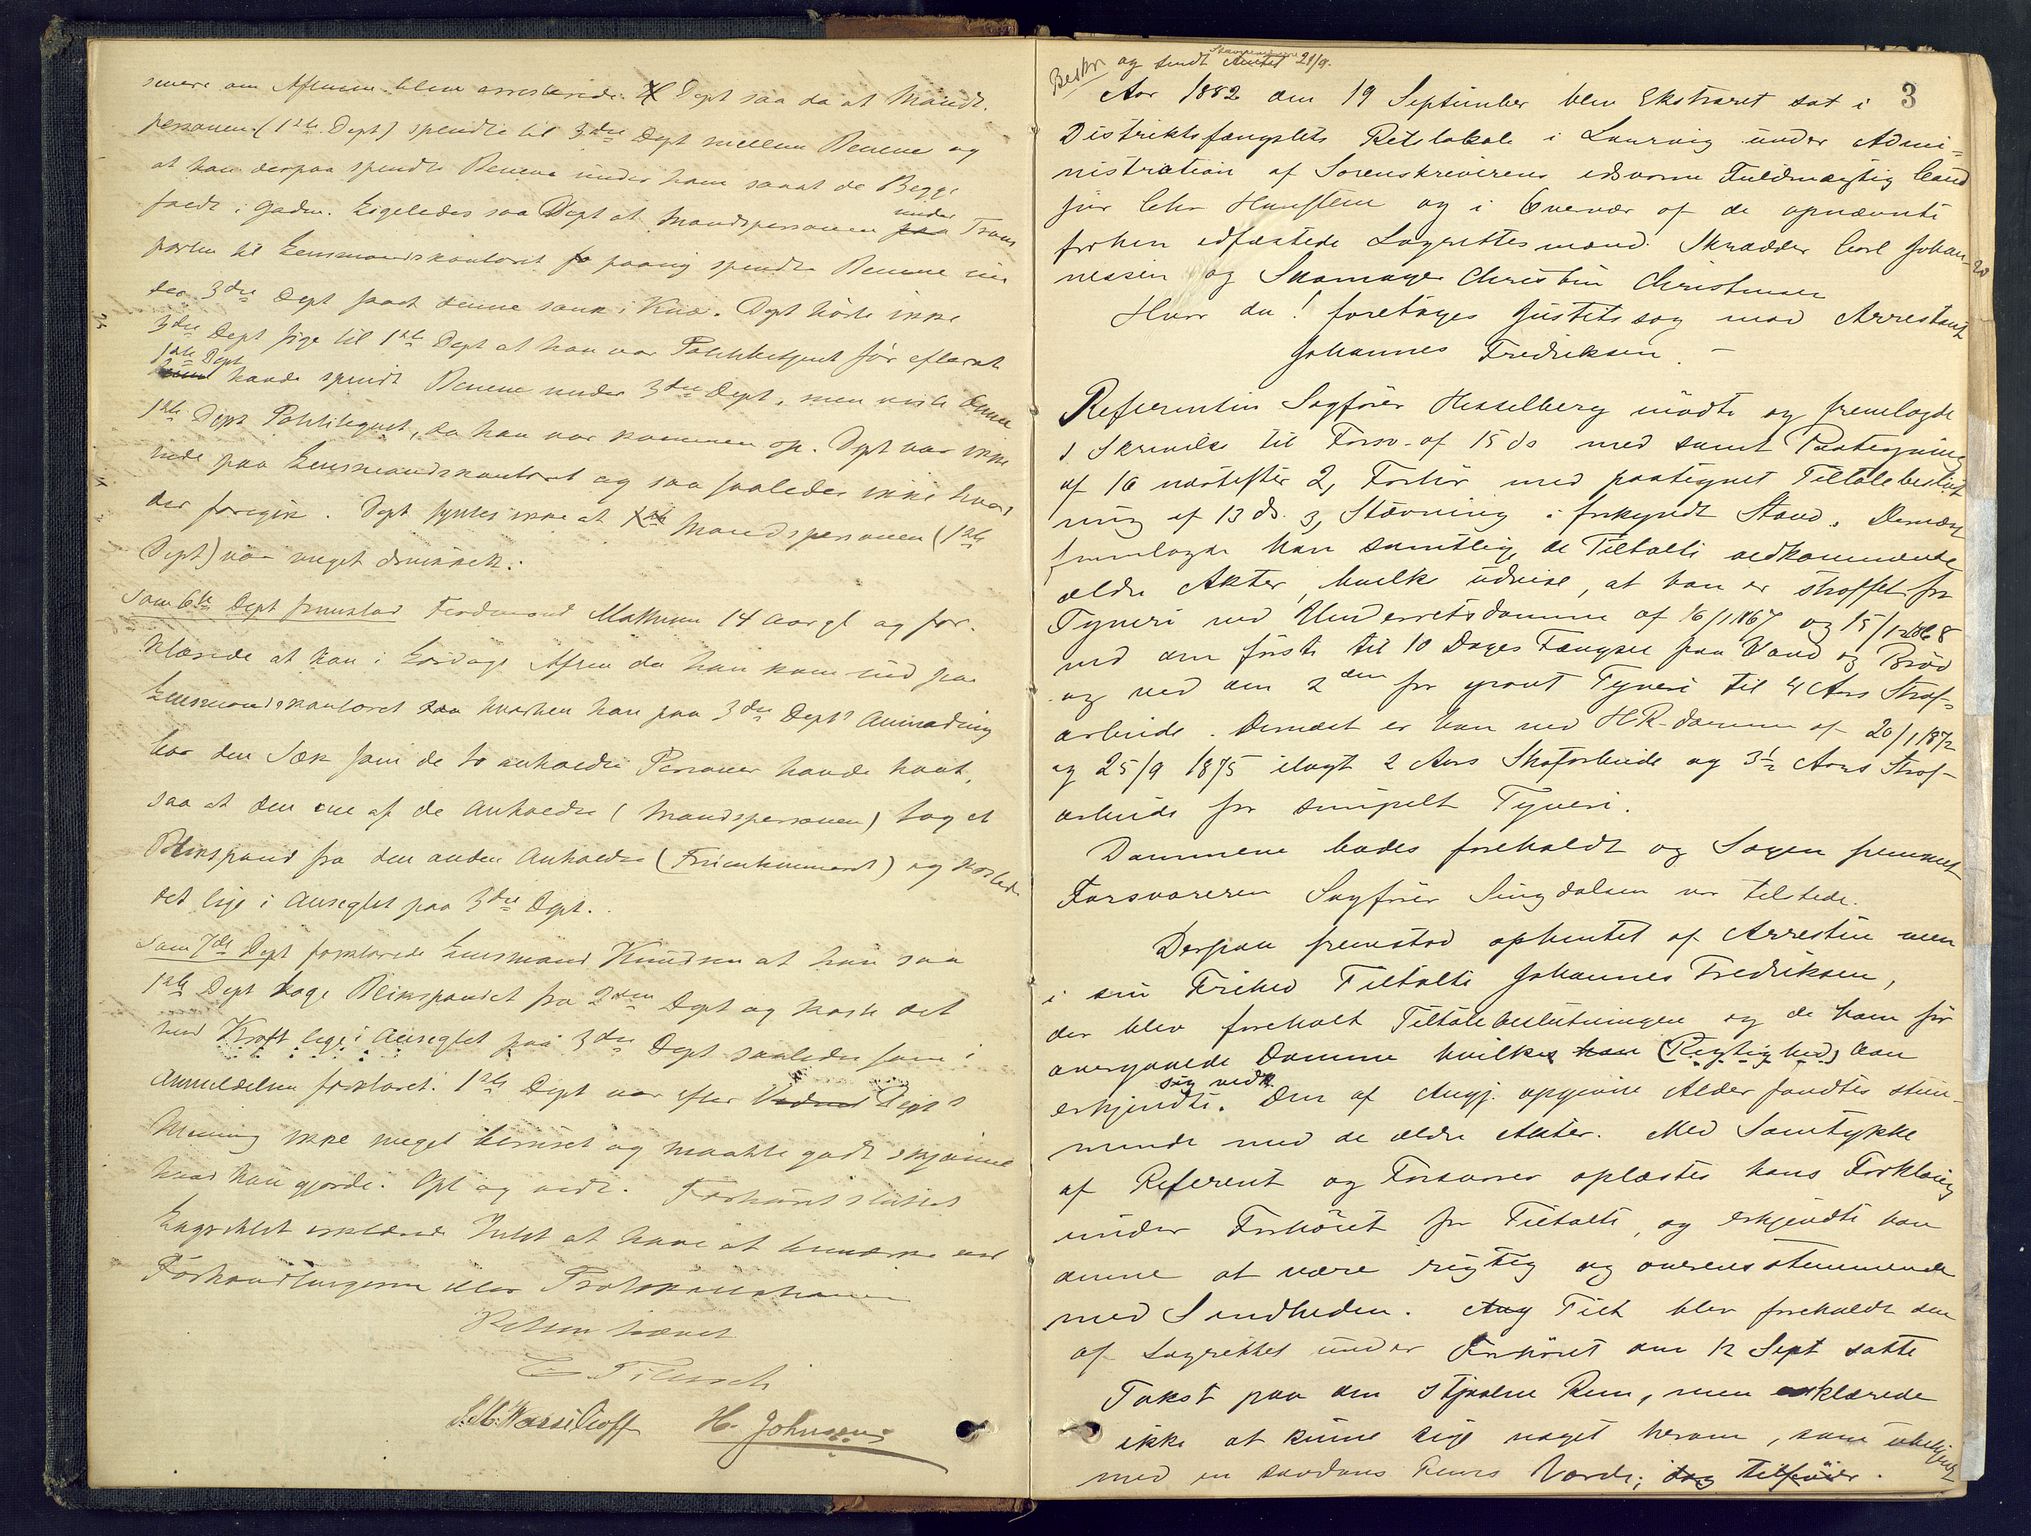 senere om Aftenen bleve arresterede. Dept saa da at Mands-
personen (1ste Dept) spendte til 3die Dept mellem Benene og
at han derpaa spendte Benene under ham saa at de Begge
faldt i Gaden. Ligeledes saa Dept at Mandspersonen under Trans
porten til Lensmandskontoret paany spendte Benene un
der 3die Dept saa at denne sank i Knæ. Dept hørte ikke
3die Dept sige til 1ste Dept at han var Politibetjent før efterat
1ste Dept havde spendt Benene under 3die Dept, men viste denne
1ste Dept Politilegnet, da han var kommen op. Dept var ikke
inde paa Lensmandskontoret og saa saaledes ikke hvad
der foregik. Dept syntes ikke at Mandspersonen (1ste
Dept) var meget drukken.
Som 6te Dept fremstod Ferdinand Mathisen 14 Aar gl og for-
klarede at han i Lørdags Aften da han kom ind paa
Lensmandskontoret hvorhen han paa 3die Dept's Anmodning
bar den Sæk som de to anholdte Personer havde havt,
saa at den ene af de Anholdte (Mandspersonen) tog et
Blikspand fra den anden Anholdte (Fruentimmeret) og kastede
det lige i Ansigtet paa 3die Dept.
Som 7de Dept forklarede Lensmand Knudsen at han saa
1ste Dept tage Blikspandet fra 2den Dept og kaste det
med Kraft lige i Ansigtet paa 3die Dept saaledes som i
Anmeldelsen forklaret. 1ste Dept var efter Dept's
Mening ikke meget beruset og maatte godt skjønne
hvad han gjorde. Opl og vedt. Forhøret sluttet
Lagrettet erklærede Intet at have at bemærke ved
Forhandlingerne eller Protokollationen
Retten hævet
H. Johnsen
Beskr og sendt Amtet 21/9.
3
Aar 1882 den 19 September blev Ekstraret sat i
Distriktsfængslets Retslokale i Laurvig under Admi-
nistration af Sorenskriverens edsvorne Fuldmægtig Cand
jur Chr Hansteen og i Overvær af de opnævnte
forhen edfæstede Lagrettesmænd: Skrædder Carl Johan-
nessen og Skomager Christen Christensen
Hvor da! foretoges Justitssag mod Arrestant
Johannes Fredriksen. –
Referenten Sagfører Hesselberg mødte og fremlagde
1 Skrivelse til Forsv. af 15 ds med samt Paategning
af 16 næstefter 2, Forhør med paategnet Tiltalebeslut
ning af 13 ds. 3, Stævning i forkyndt Stand. Dernæst
fremlagde han samtlige de Tiltalte vedkommende
ældre Akter, hvilke udvise, at han er straffet for
Tyveri ved Underretsdomme af 16/1 1867 og 15/12 1868
ved den første til 10 Dages Fængsel paa Vand og Brød
og ved den 2den for grovt Tyveri til 4 Aars Straf-
arbeide. Dernæst er han ved H.R-domme af 20/1 1872
og 25/9 1875 ilagt 2 Aars Strafarbeide og 3½ Aars Straf-
arbeide for simpelt Tyveri.
Dommene bades foreholdt og Sagen fremmet
Forsvareren Sagfører Singdalsen var tilstede.
Derpaa fremstod afhentet af Arresten men
i sin Frihed Tiltalte Johannes Fredriksen,
der blev foreholdt Tiltalebeslutningen og de ham før
overgaaede Domme hvilkes han Rigtighed han
sig vedk
erkjendte. Den af Angj. opgivne Alder fandtes stem-
mende med de ældre Akter. Med Samtykke
af Referent og Forsvarer oplæstes hans Forklaring
under Forhøret for Tiltalte, og erkjendte han
denne at være rigtig og overensstemmende
med Sandheden. Tilt blev foreholdt den
af Lagrettet under Forhøret den 12 Sept satte
Takst paa den stjaalne Rem, men erklærede
ikke at kunne sige noget herom, som ubekjendt
med en saadans Rems Værdi; dog tilføier.